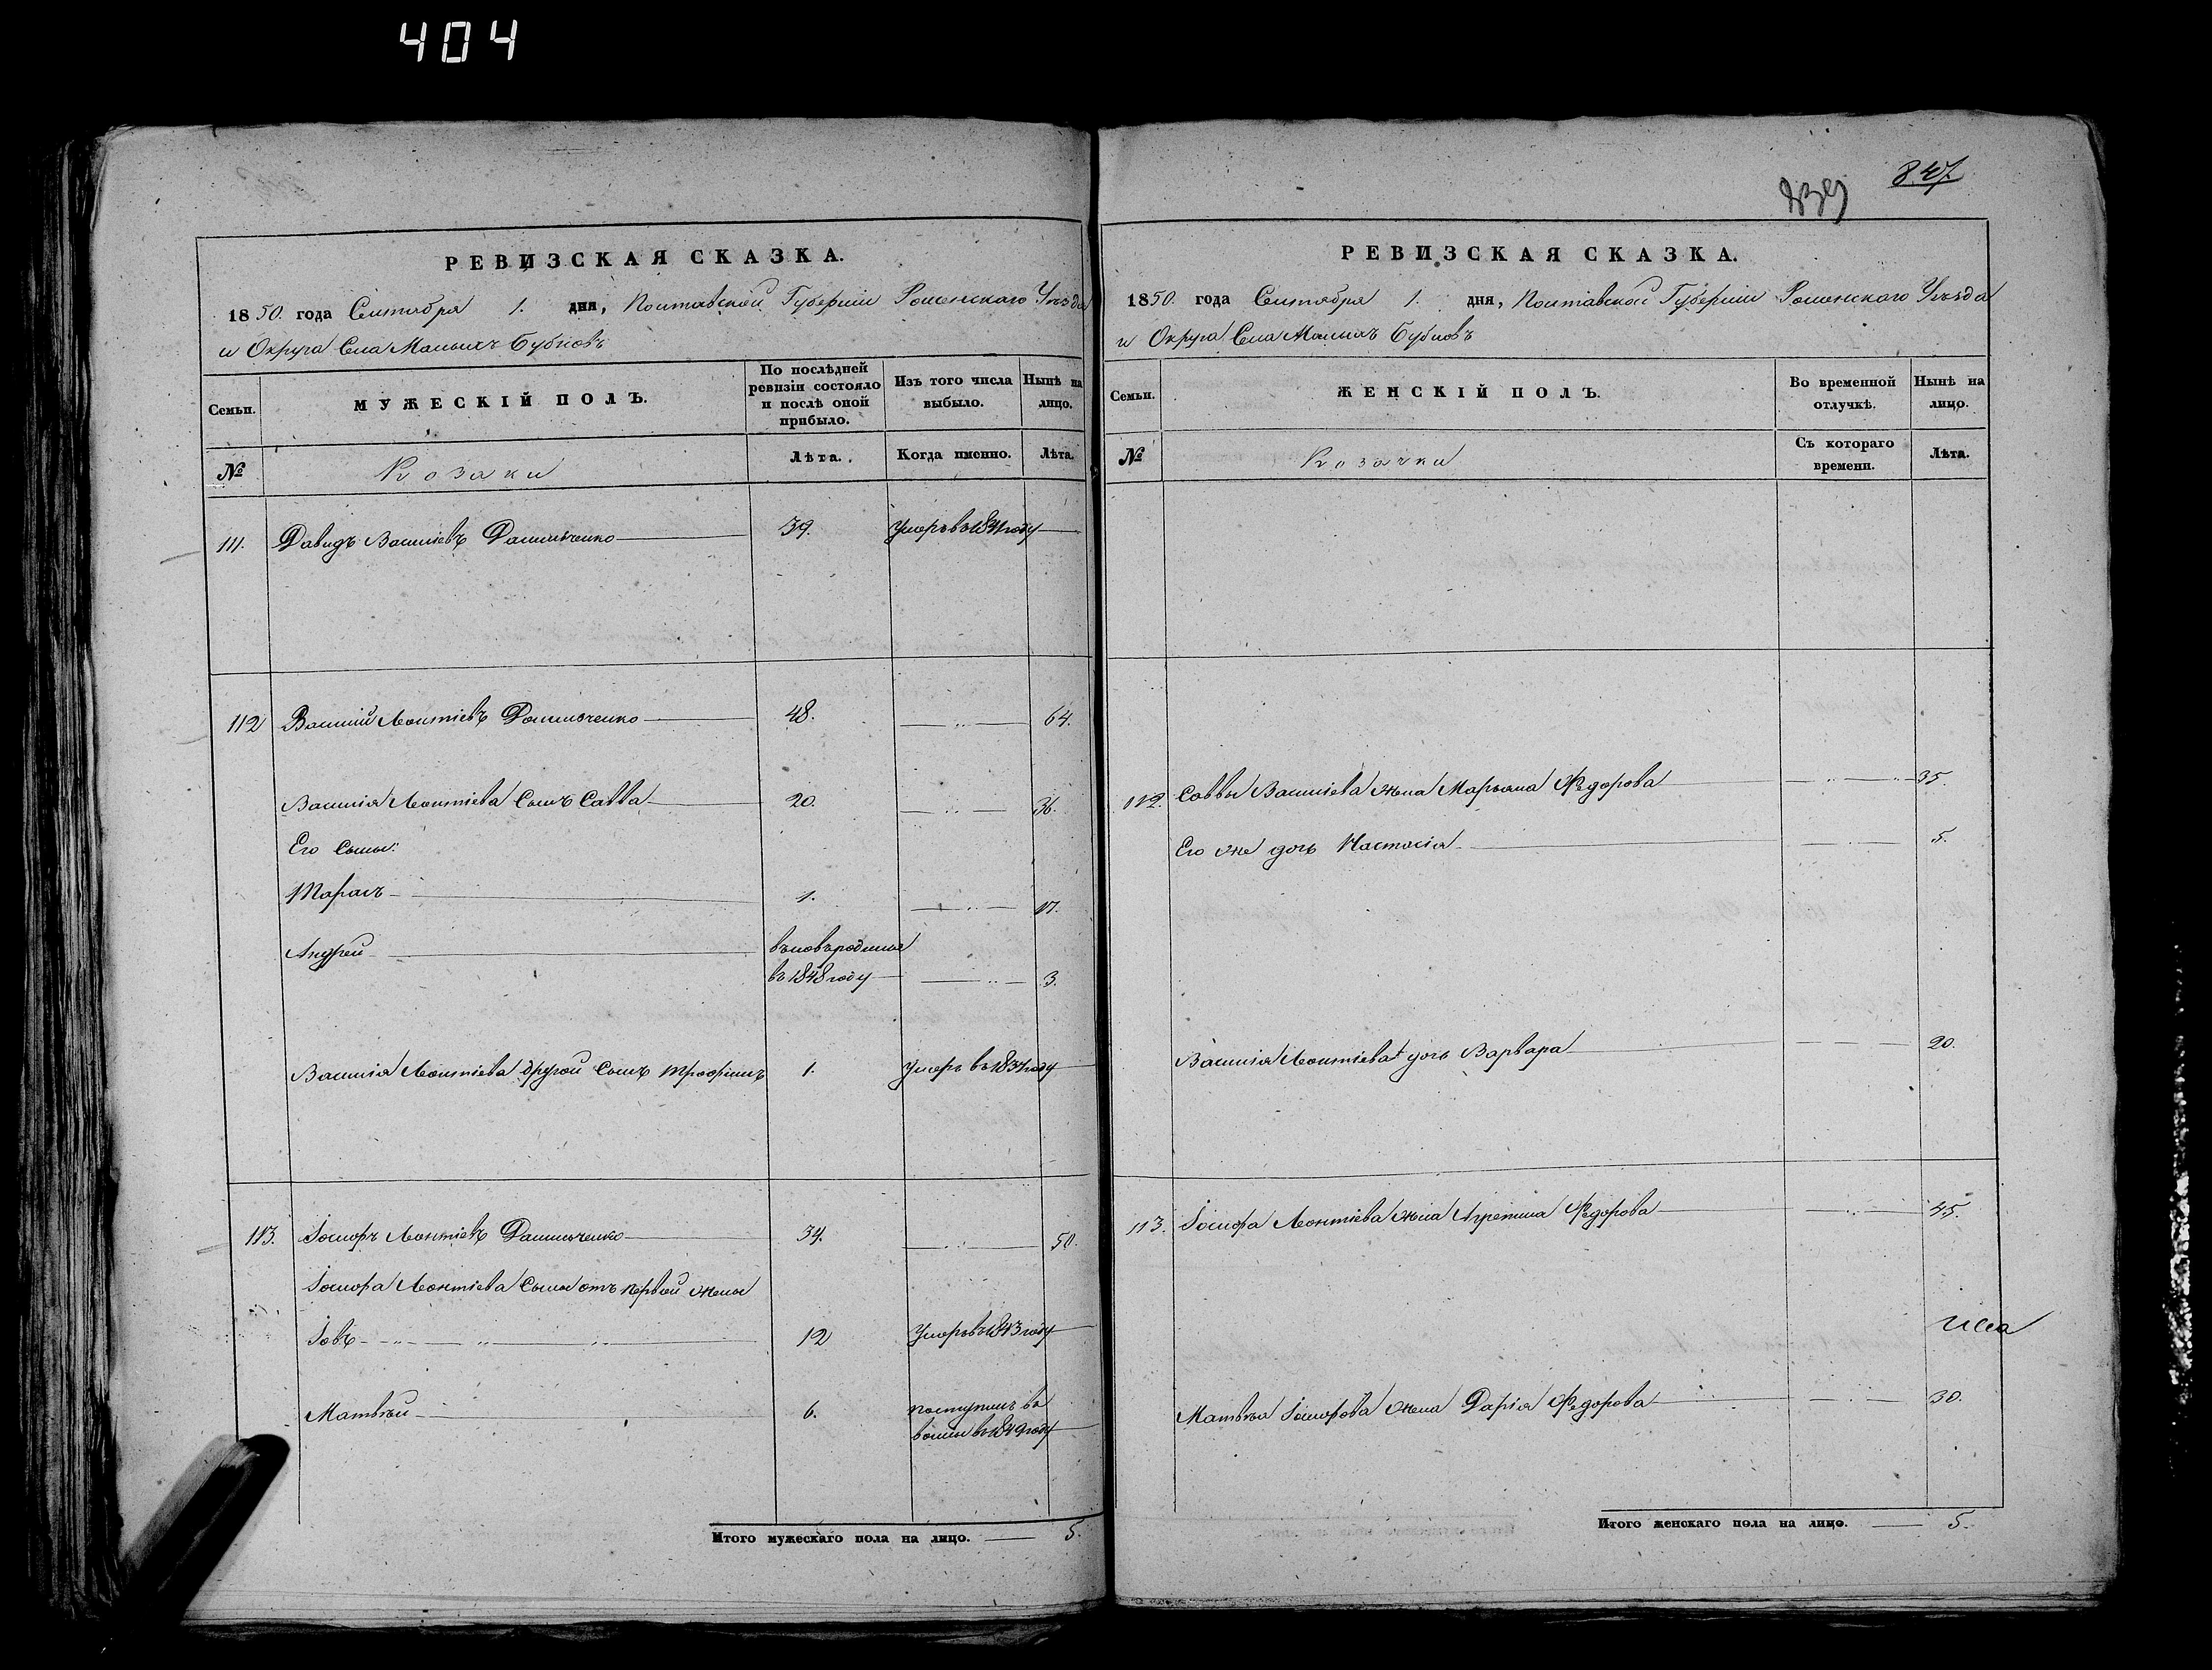 404
РЕВИЗСКАЯ СКАЗКА.
1850. года Сентября 1. дня, Полтавской Губерніи Роменскаго Уѣзда
и Округа Села Малыхъ Бубновъ
Семьи.
МУЖЕСКІЙ ПОЛЪ.
По послѣдней ревизіи состояло и послѣ оной прибыло.
Изъ того числа выбыло.
Нынѣ на лицо.
№
Козаки
Лѣта.
Когда именно.
Лѣта.
111. Давидъ Василіевъ Данильченко 39. Умеръ въ 1841 году
112 Василій Леонтіевъ Данильченко 48. 64.
Василія Леонтіева Сынъ Савва 20. 36.
Его Сыны:
Тарасъ 1. 17.
Андрей вновьродился
въ 1848 году 3.
Василія Леонтіева другой Сынъ Трофимъ 1. Умеръ въ 1837 году
113. Іосифъ Леонтіевъ Данильченко 34. 50.
Іосифа Леонтіева Сыны отъ первой жены
Іовъ 12 Умеръ въ 1843 году
Матвѣй 6. поступилъ въ
воины въ 1849 году
Итого мужескаго пола на лицо. 5.
847
839
РЕВИЗСКАЯ СКАЗКА.
1850. года Сентября 1. дня, Полтавской Губерніи Роменскаго Уѣзда
и Округа Села Малыхъ Бубновъ
Семьи.
ЖЕНСКІЙ ПОЛЪ.
Во временной отлучкѣ.
Нынѣ на лицо.
№
Козачки
Съ котораго времени.
Лѣта.
112. Саввы Василіева жена Марьяна Федорова 35.
Его же дочь Настасія 5.
Василія Леонтіева дочь Варвара 20.
113. Іосифа Леонтіева жена Агрепина Федорова 45.
Матвѣя Іосифова жена Дарія Федорова 30.
Итого женскаго пола на лицо. 5.